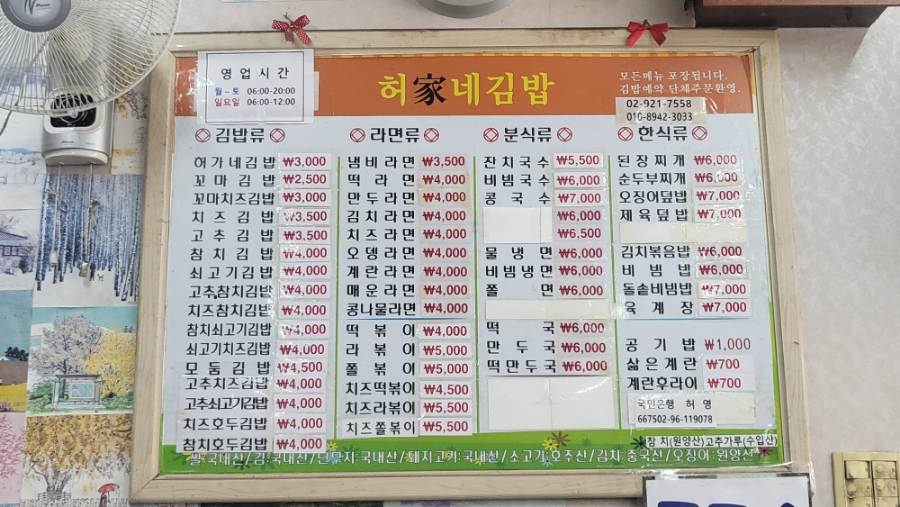 영업시간
월-토 06:00-20:00
일요일 06:00-12:00
허家네김밥
모든메뉴 포장됩니다.
김밥예약 단체주문환영.
02-921-7558
010-8942-3033
김밥류
허가네김밥 ₩3,000
꼬마김밥 ₩2,500
꼬마치즈김밥 ₩3,000
치즈김밥 ₩3,500
고추김밥 ₩3,500
참치김밥 ₩4,000
쇠고기김밥 ₩4,000
고추참치김밥 ₩4,000
치즈참치김밥 ₩4,000
참치쇠고기김밥 ₩4,000
쇠고기치즈김밥 ₩4,000
모둠김밥 ₩4,500
고추치즈김밥 ₩4,000
고추쇠고기김밥 ₩4,000
치즈호두김밥 ₩4,000
참치호두김밥 ₩4,000
라면류
냄비라면 ₩3,500
떡라면 ₩4,000
만두라면 ₩4,000
김치라면 ₩4,000
치즈라면 ₩4,000
오뎅라면 ₩4,000
계란라면 ₩4,000
매운라면 ₩4,000
콩나물라면 ₩4,000
떡볶이 ₩4,000
라볶이 ₩5,000
쫄볶이 ₩5,000
치즈떡볶이 ₩4,500
치즈라볶이 ₩5,500
치즈쫄볶이 ₩5,500
분식류
잔치국수 ₩5,500
비빔국수 ₩6,000
콩국수 ₩7,000
₩6,000
₩6,500
물냉면 ₩6,000
비빔냉면 ₩6,000
쫄면 ₩6,000
떡국 ₩6,000
만두국 ₩6,000
떡만두국 ₩6,000
한식류
된장찌개 ₩6,000
순두부찌개 ₩6,000
오징어덮밥 ₩7,000
제육덮밥 ₩7,000
김치볶음밥 ₩6,000
비빔밥 ₩6,000
돌솥비빔밥 ₩7,000
육계장 ₩7,000
공기밥 ₩1,000
삶은계란 ₩700
계란후라이 ₩700
국민은행 허영
667502-96-119078
참치(원양산)고추가루(수입산)
쌀:국내산/김:국내산/단무지:국내산/돼지고기:국내산/소고기:호주산/김치:중국산/오징어:원양산